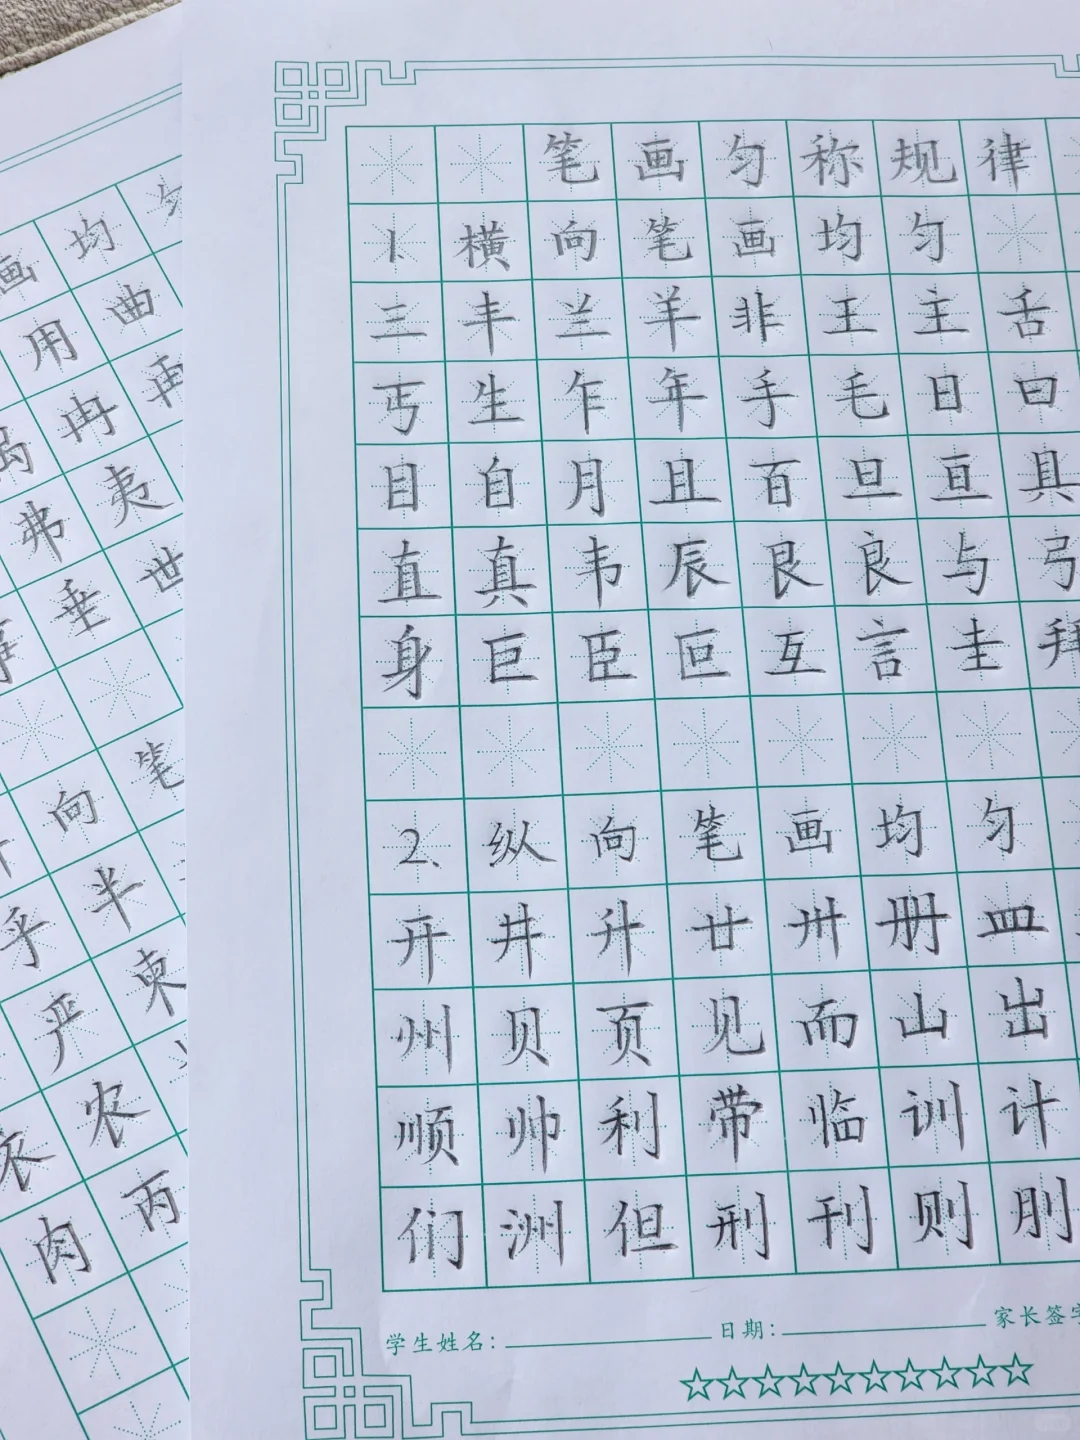 笔画匀称规律
1.横向笔画均匀
三丰兰羊非王主舌
丐生乍年手毛日曰
目自月且百旦亘具
直真韦辰艮良与弓
身巨臣叵互言圭拜
2、纵向笔画均匀
开井升廿卅册皿
州贝页见而山出
顺帅利带临训计
们洲但刑刊则刖
学生姓名: 日期: 家长签字
画均匀
用曲
冉再
弗夷
垂世
向笔
乎半
严柬
农
肉丙